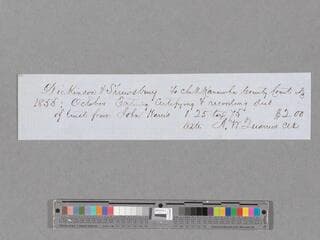 Dickinson & Shrewsbury To clk Kanawha County Court Dr
1855: October Taking Certifying & recording deed
of trust from John Harris 1 25 tax 75 $2.00
Teste A. W. Quarrier clk